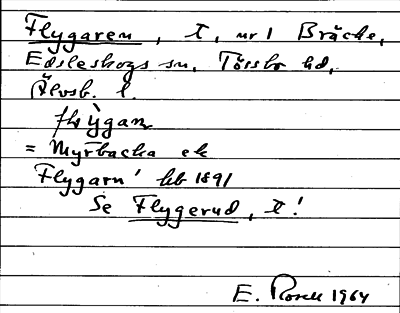 Flygaren, t, nr 1 Bräcke,
Edsleskogs sn, Tössbo hd,
Älvsb. l.
flỳgarn
= Myrbacka ek
Flygarn' hb 1891
Se Flygerud, t!
E. Rosell 1964